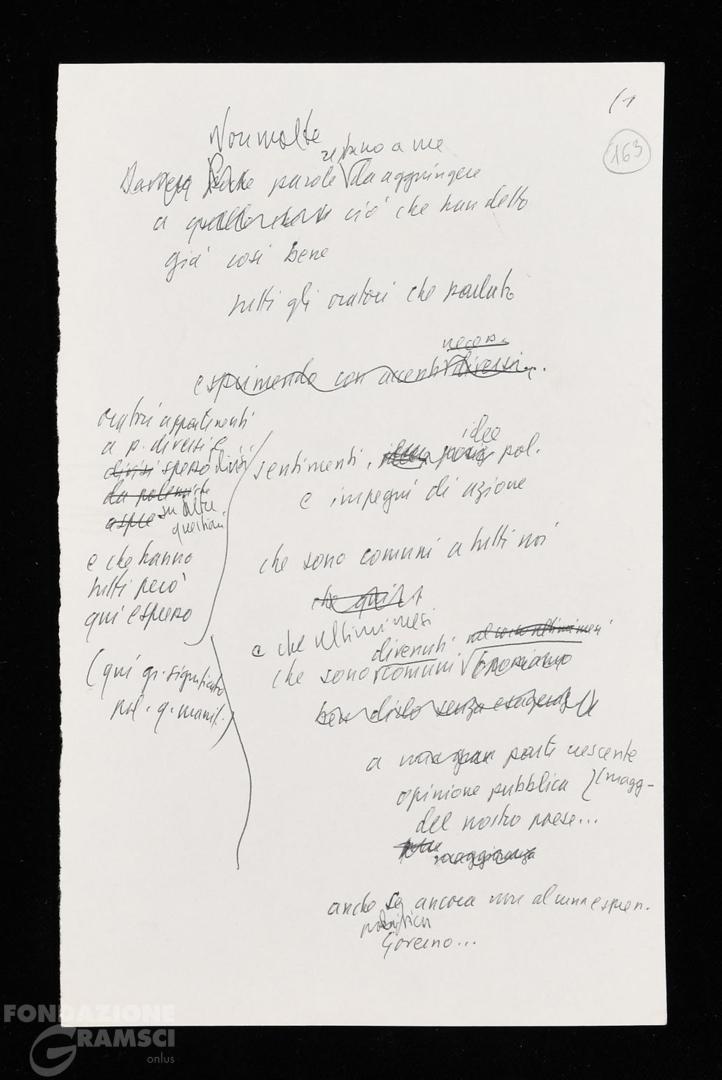 (1
163
Non molte
restano a me
Davvero poche parole da aggiungere
a ciò che han detto
già così bene
tutti gli oratori che parlato
necess.
esprimendo con accenti diversi
oratori appartenenti
a p. diversi e
divisi spesso divisi
da polemiche
aspre su altre
questioni
e che hanno
tutti però
qui espresso
(qui gr. significato
pol. q. manif.)
idee
sentimenti, pol.
e impegni di azione
che sono comuni a tutti noi
che qui
e che ultimi mesi
divenuti nel corso ultimi mesi
che sono comuni possiamo
ben dirlo senza esagerare
a parte crescente
opinione pubblica (magg-
del nostro paese...
maggioranza
anche se ancora non al
politica
Governo...
FONDAZIONE
GRAMSCI
onlus